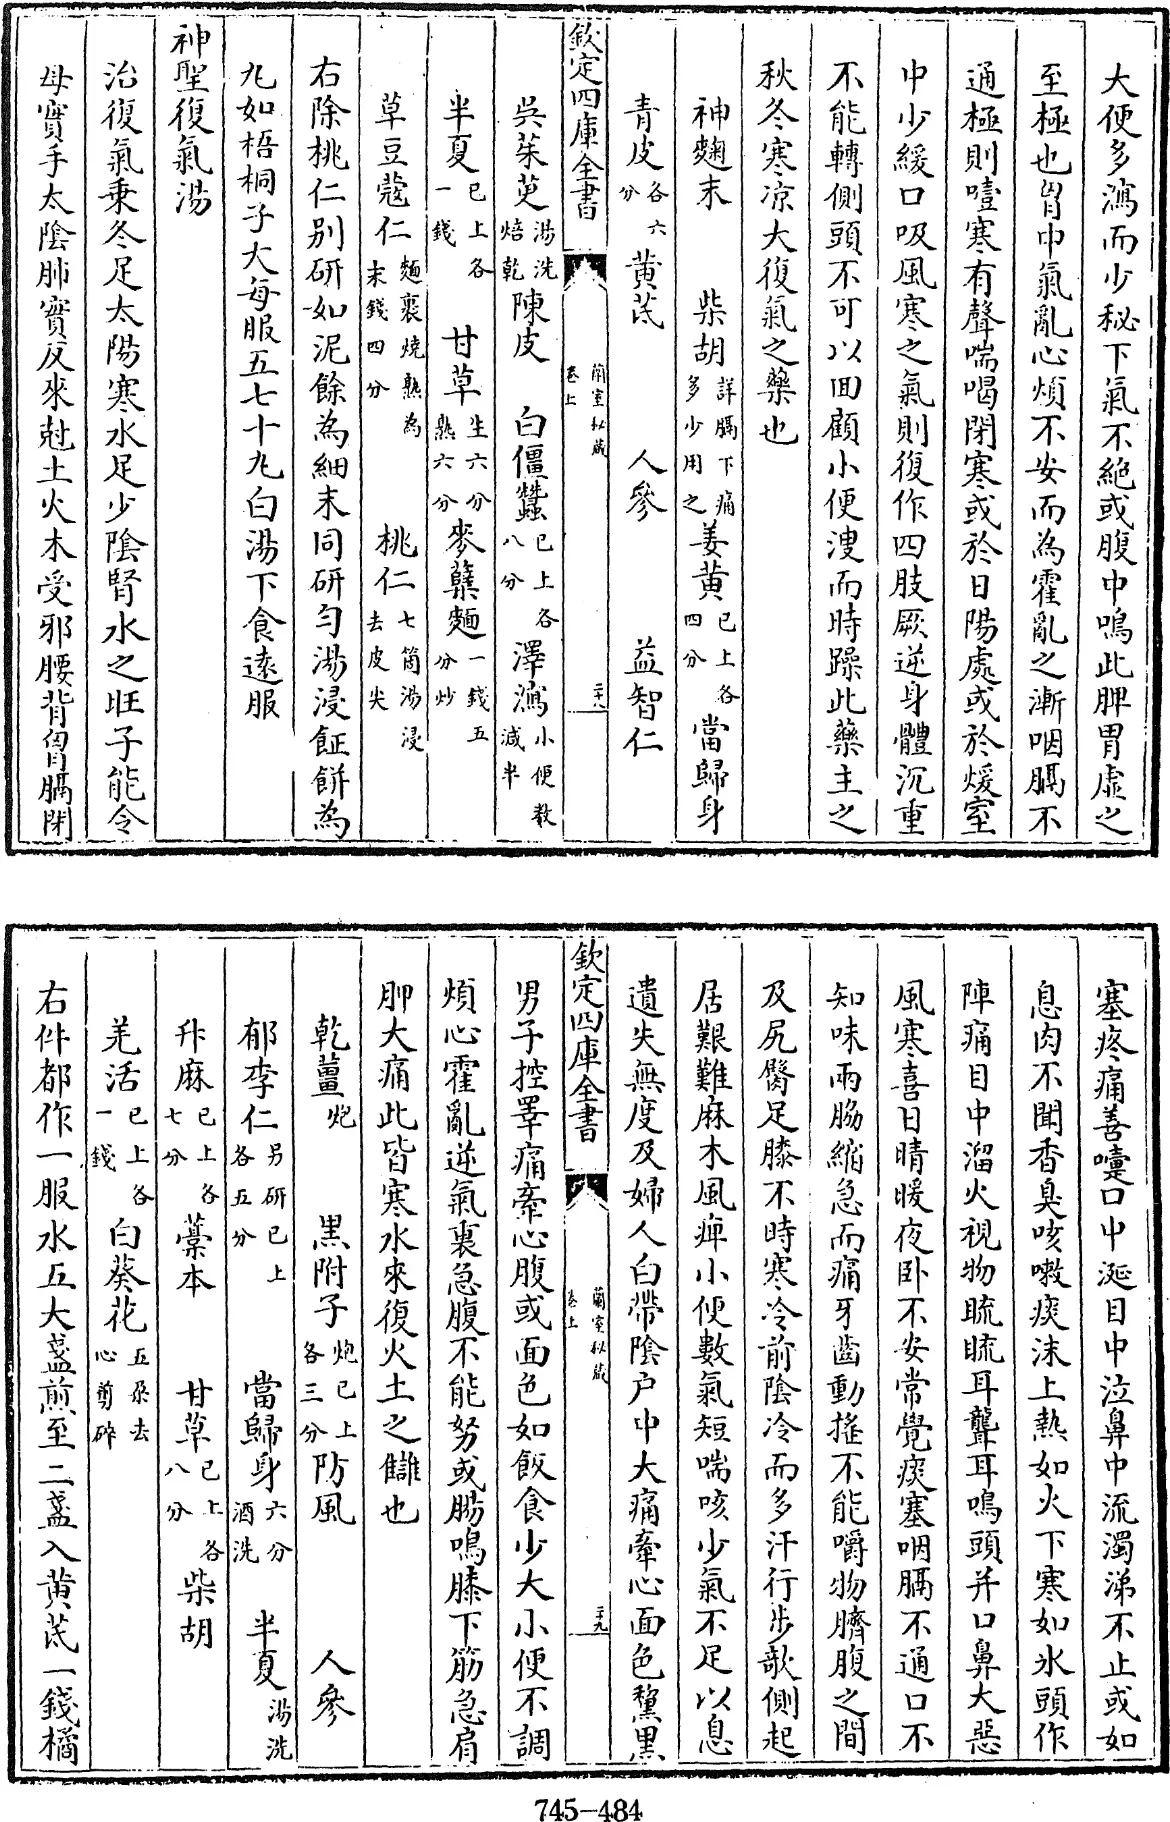 大便多瀉而少秘下氣不絶或腹中鳴此脾胃虚之
至極也胷中氣亂心煩不安而為霍亂之漸咽膈不
通極則噎寒有聲喘喝閉寒或於日陽處或於煖室
中少緩口吸風寒之氣則復作四肢厥逆身體沉重
不能轉側頭不可以回顧小便溲而時躁此藥主之
秋冬寒凉大復氣之藥也
神麴末 柴胡詳膈下痛多少用之 姜黄已上各四分 當歸身
青皮各六分 黄茋 人參 益智仁
欽定四庫全書 蘭室秘藏卷上 二十八
吳茱萸湯洗焙乾 陳皮 白僵蠶已上各八分 澤瀉小便數減半
半夏已上各一錢 甘草生六分熟六分 麥蘖麵一錢五分炒
草豆蔻仁麵裹燒熟為末錢四分 桃仁七箇湯浸去皮尖
右除桃仁别研如泥餘為細末同研匀湯浸飪餅為
丸如梧桐子大每服五七十丸白湯下食逺服
神聖復氣湯
治復氣乗冬足太陽寒水足少陰腎水之旺子能令
母實手太陰肺實反來尅土火木受邪腰背胷膈閉
塞疼痛善嚏口中涎目中泣鼻中流濁涕不止或如
息肉不聞香臭咳嗽痰沫上熱如火下寒如氷頭作
陣痛目中溜火視物䀮䀮耳聾耳鳴頭并口鼻大惡
風寒喜日晴暖夜卧不安常覺痰塞咽膈不通口不
知味兩脇縮急而痛牙齒動揺不能嚼物臍腹之間
及尻臀足膝不時寒冷前陰冷而多汗行步欹側起
居艱難麻木風痺小便數氣短喘咳少氣不足以息
遺失無度及婦人白帶陰户中大痛牽心面色黧黒
欽定四庫全書 蘭室秘藏卷上 二十九
男子控睪痛牽心腹或面色如飯食少大小便不調
煩心霍亂逆氣裏急腹不能努或腸鳴膝下筋急肩
胛大痛此皆寒水來復火土之讎也
乾薑炮 黒附子炮已上各三分 防風 人參
郁李仁另研已上各五分 當歸身六分酒洗 半夏湯洗
升麻已上各七分 藁本 甘草已上各八分 柴胡
羌活已上各一錢 白葵花五朶去心剪碎
右件都作一服水五大盞煎至二盞入黄茋一錢橘
745-484